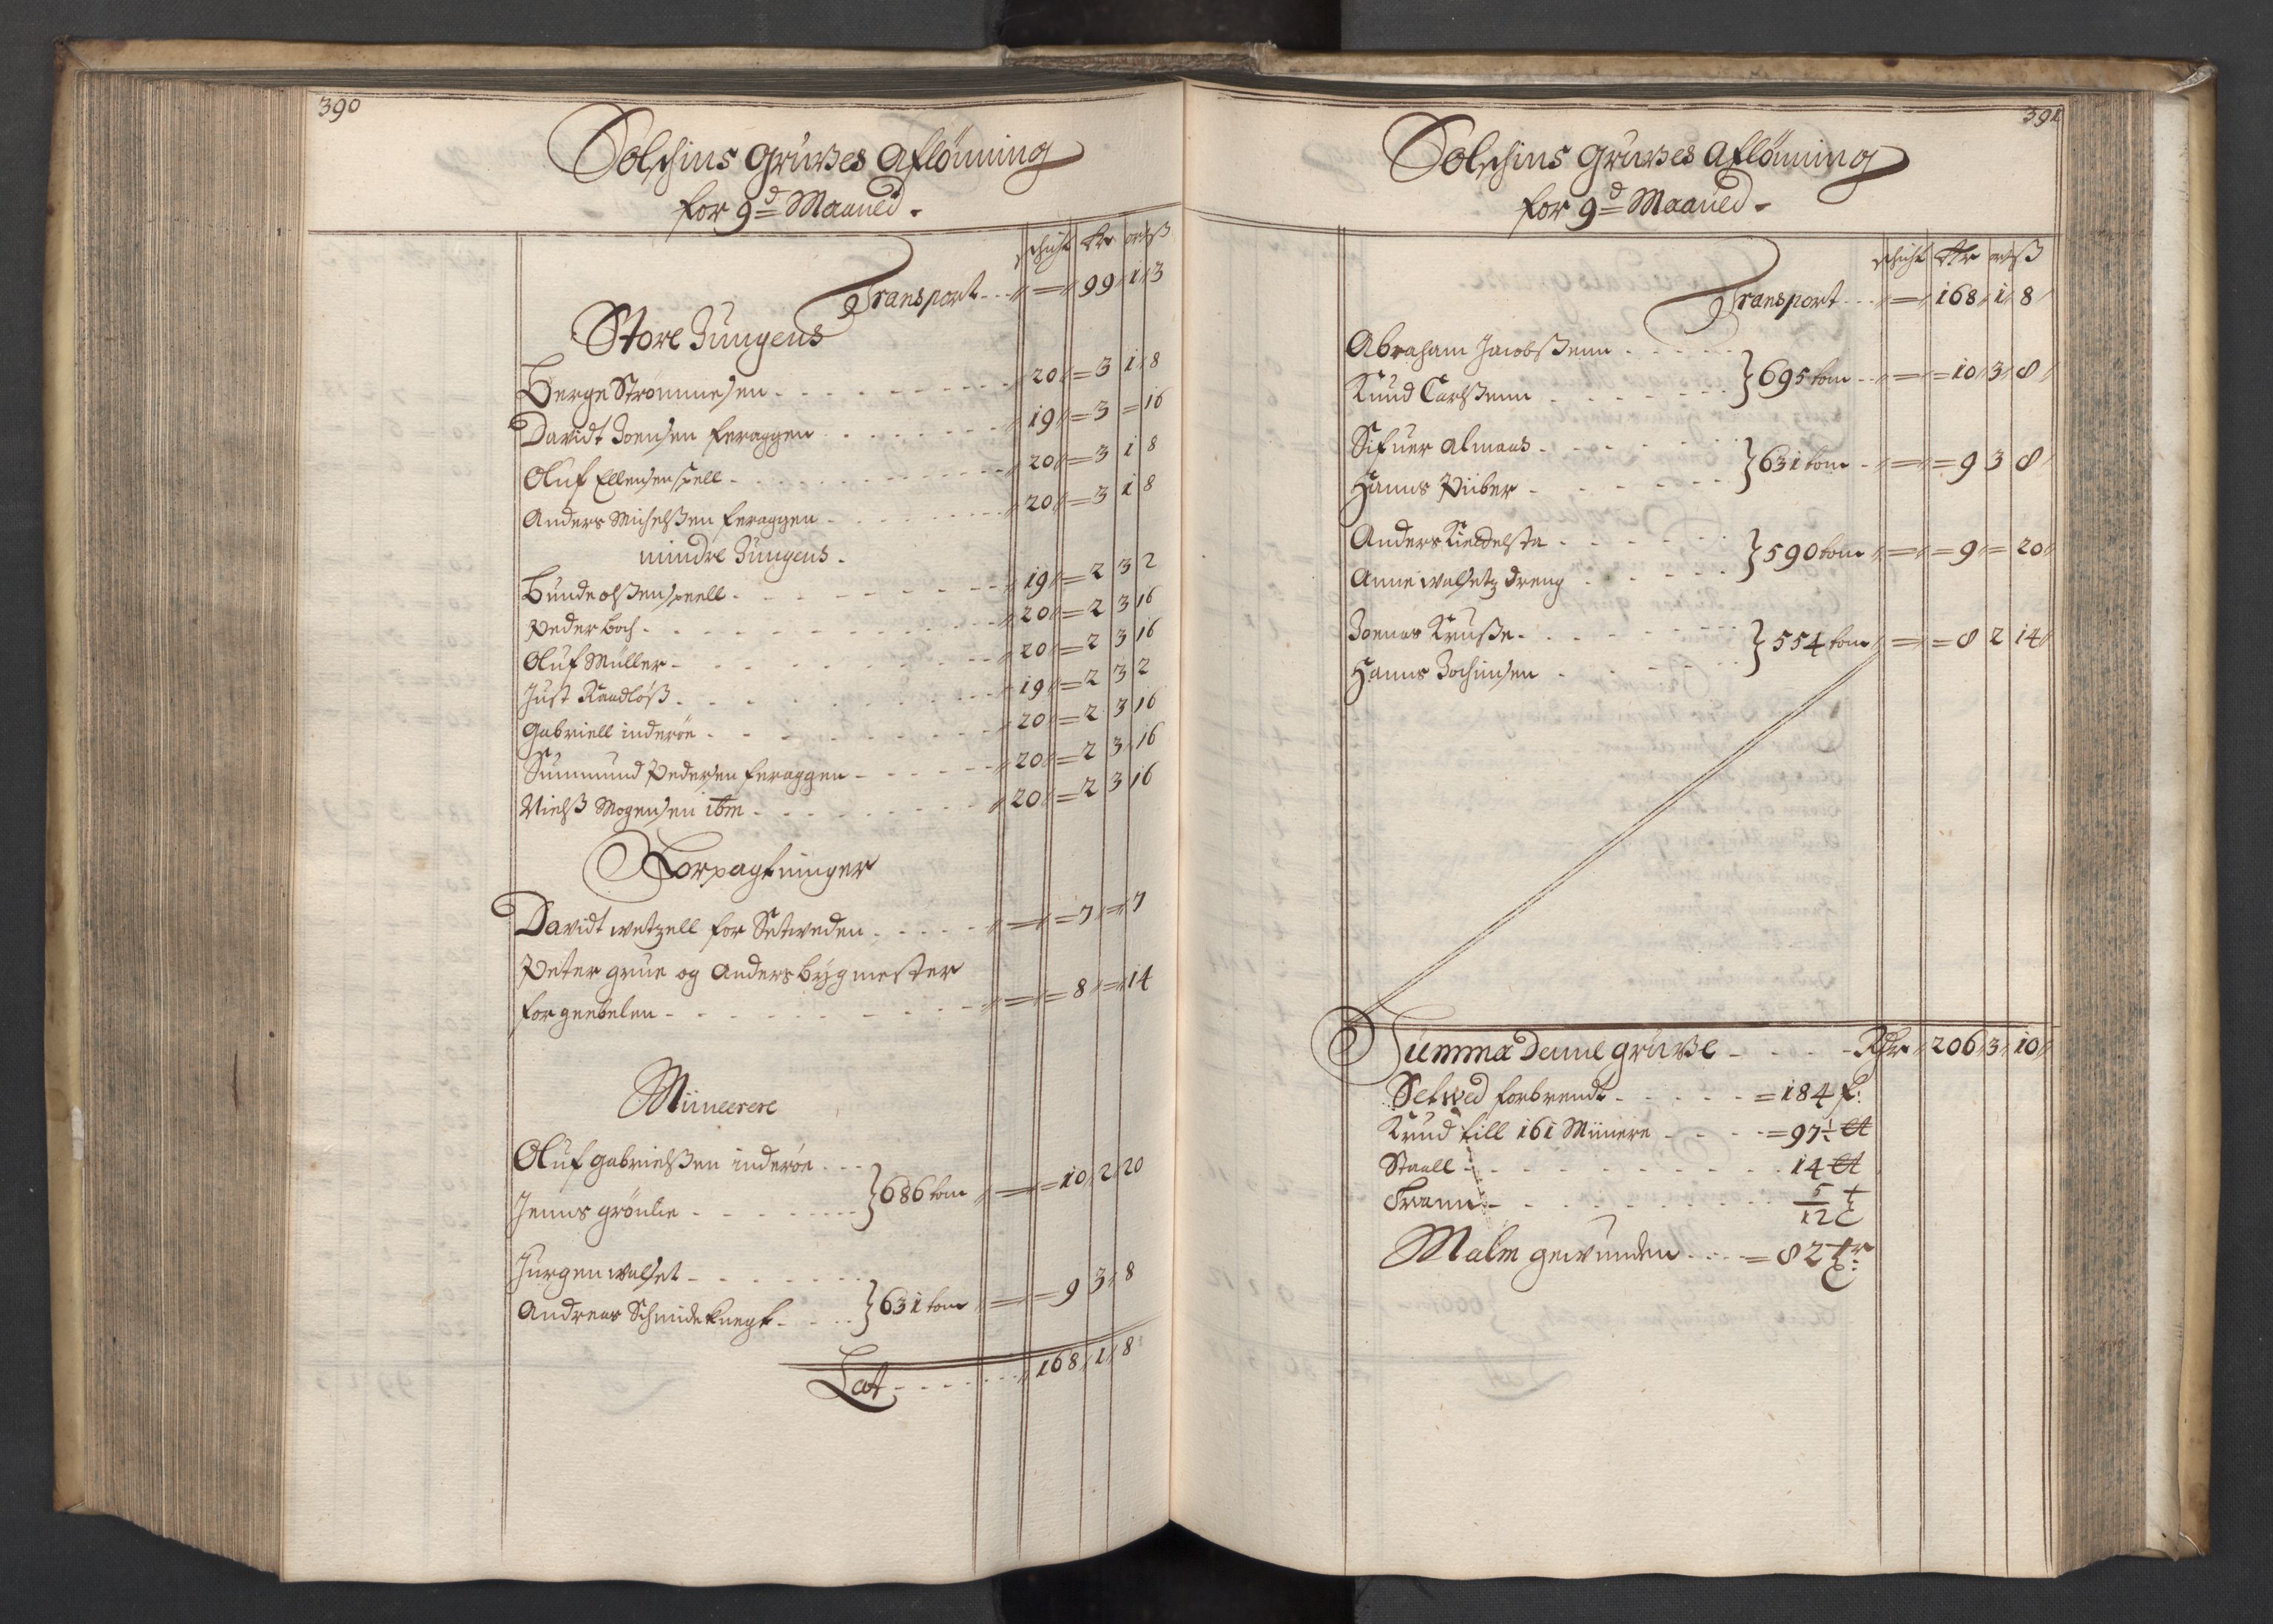 390
Solschins Gruves Aflönning
for 9d Maaned.
schicht Rr ort ß
Transport - - 〃 = 〃 99 〃 1 〃 3
Store Jungens
Berge Strömmesen - - - 20 〃 = 3 1 〃 8
Davidt Joensen feraggen - - - 19 〃 = 3 = 16
Oluf Ellensen spell - - - 20 〃 = 3 1 8
Anders Michelßen feraggen - - - 20 〃 = 3 1 8
mindre Jungens.
Bunde olßen speell - - - 19 〃 = 2 3 2
Peder boch - - - 20 〃 = 2 3 16
Oluf Müller - - - 20 〃 = 2 3 16
Just Raadlöß - - - 19 〃 = 2 3 2
Gabriell inderöe - - - 20 〃 = 2 3 16
Summund Pedersen feraggen - - - 20 〃 = 2 3 16
Nielß Mogensen ibm - - - 20 〃 = 2 3 16
Forpagtninger
Davidt wetzell for Setweden - - - 〃 = 〃 = 7 〃 = 7
Peter grue og Anders bygmester
for geebelen - - - 〃 = 〃 = 8 〃 = 14
Mineerere
Oluf gabrielßen inderöe - - -
Jenns grönlie - - - } 686 tom 〃 = = 10 2 20
Jurgen walset - - -
Andreas Schmideknegt - - - } 631 tom 〃 = = 9 3 〃 8
Lat - - - 168 〃 1 〃 8
391
Solschins Gruves Aflönning
for 9d Maaned.
schicht Rr ort ß
Transport - - 〃 = 〃 168 〃 1 〃 8
Abraham Jacobßenn - - -
Knud Carlßenn - - - } 695 tom - 〃 = 〃 = 10 〃 3 〃 8
Sifuer Almaas - - -
Hanns Piiber - - - } 631 tom - 〃 = 〃 = 9 3 8
Anders Kieldelsta - - -
Anne walsetz dreng - - - } 590 tom 〃 = 〃 = 9 〃 = 20
Joenas Kruße - - -
Hanns Jochimsen - - - } 554 tom 〃 = 〃 = 8 2 14
Summa denne gruve - - - Rdr 〃 206 〃 3 〃 10
Setwed forbrendt - - - = 184 f:
Krud till 161 Minere - - - = 97½ ℔
Staall - - - 14 ℔
Traann - - - 5/12 t
Malm gewunden - - - = 82 tr: